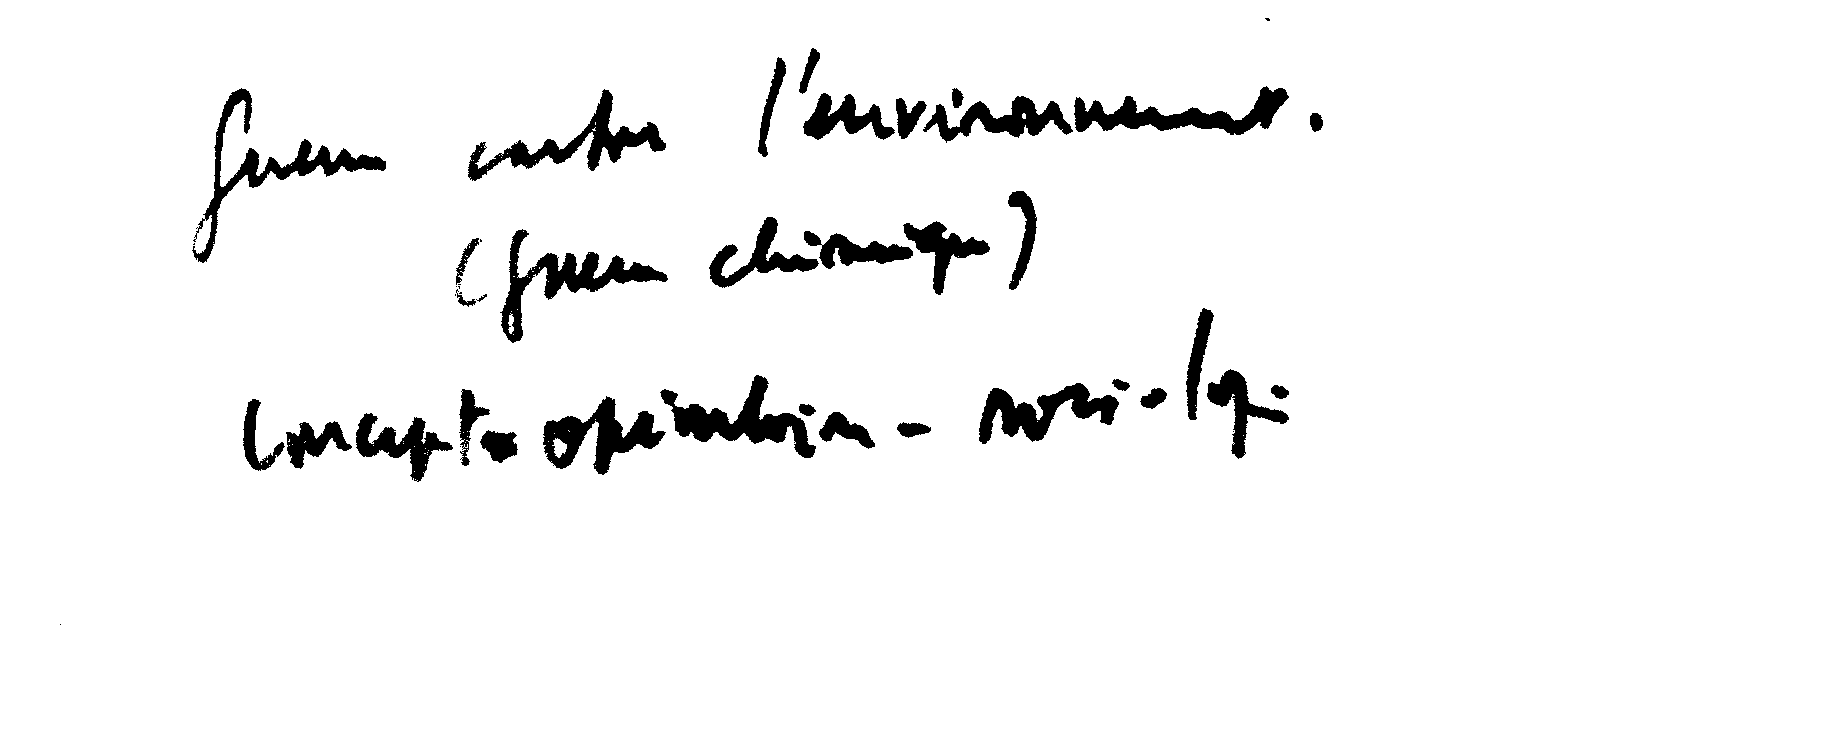 guerre contre l'environnement.
(guerre chimique)
Concept opératoire - socio-logi